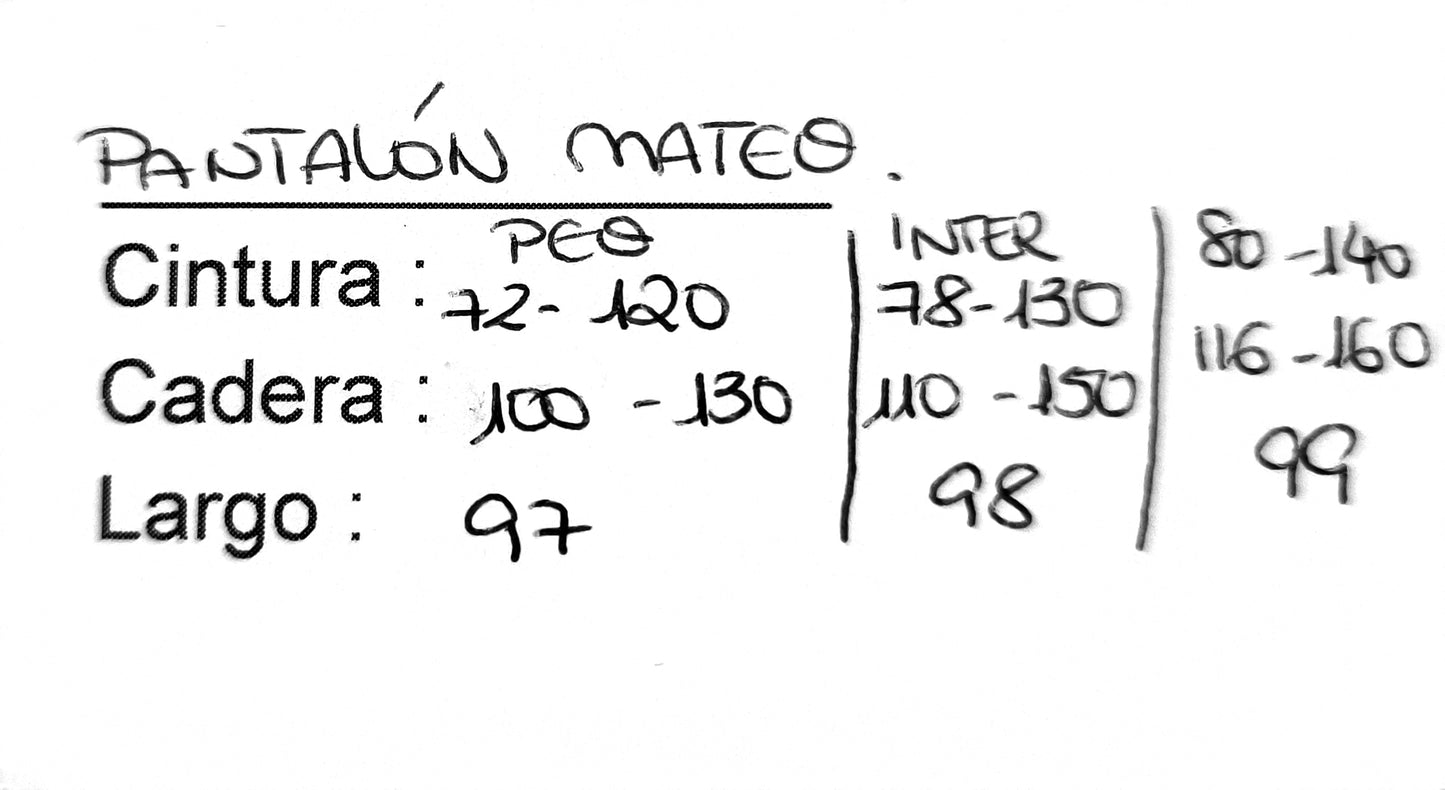 PANTALÓN MATEO.
PEQ INTER 80-140
Cintura : 72-120 78-130
116-160
Cadera : 100-130 110-150
99
Largo : 97 98